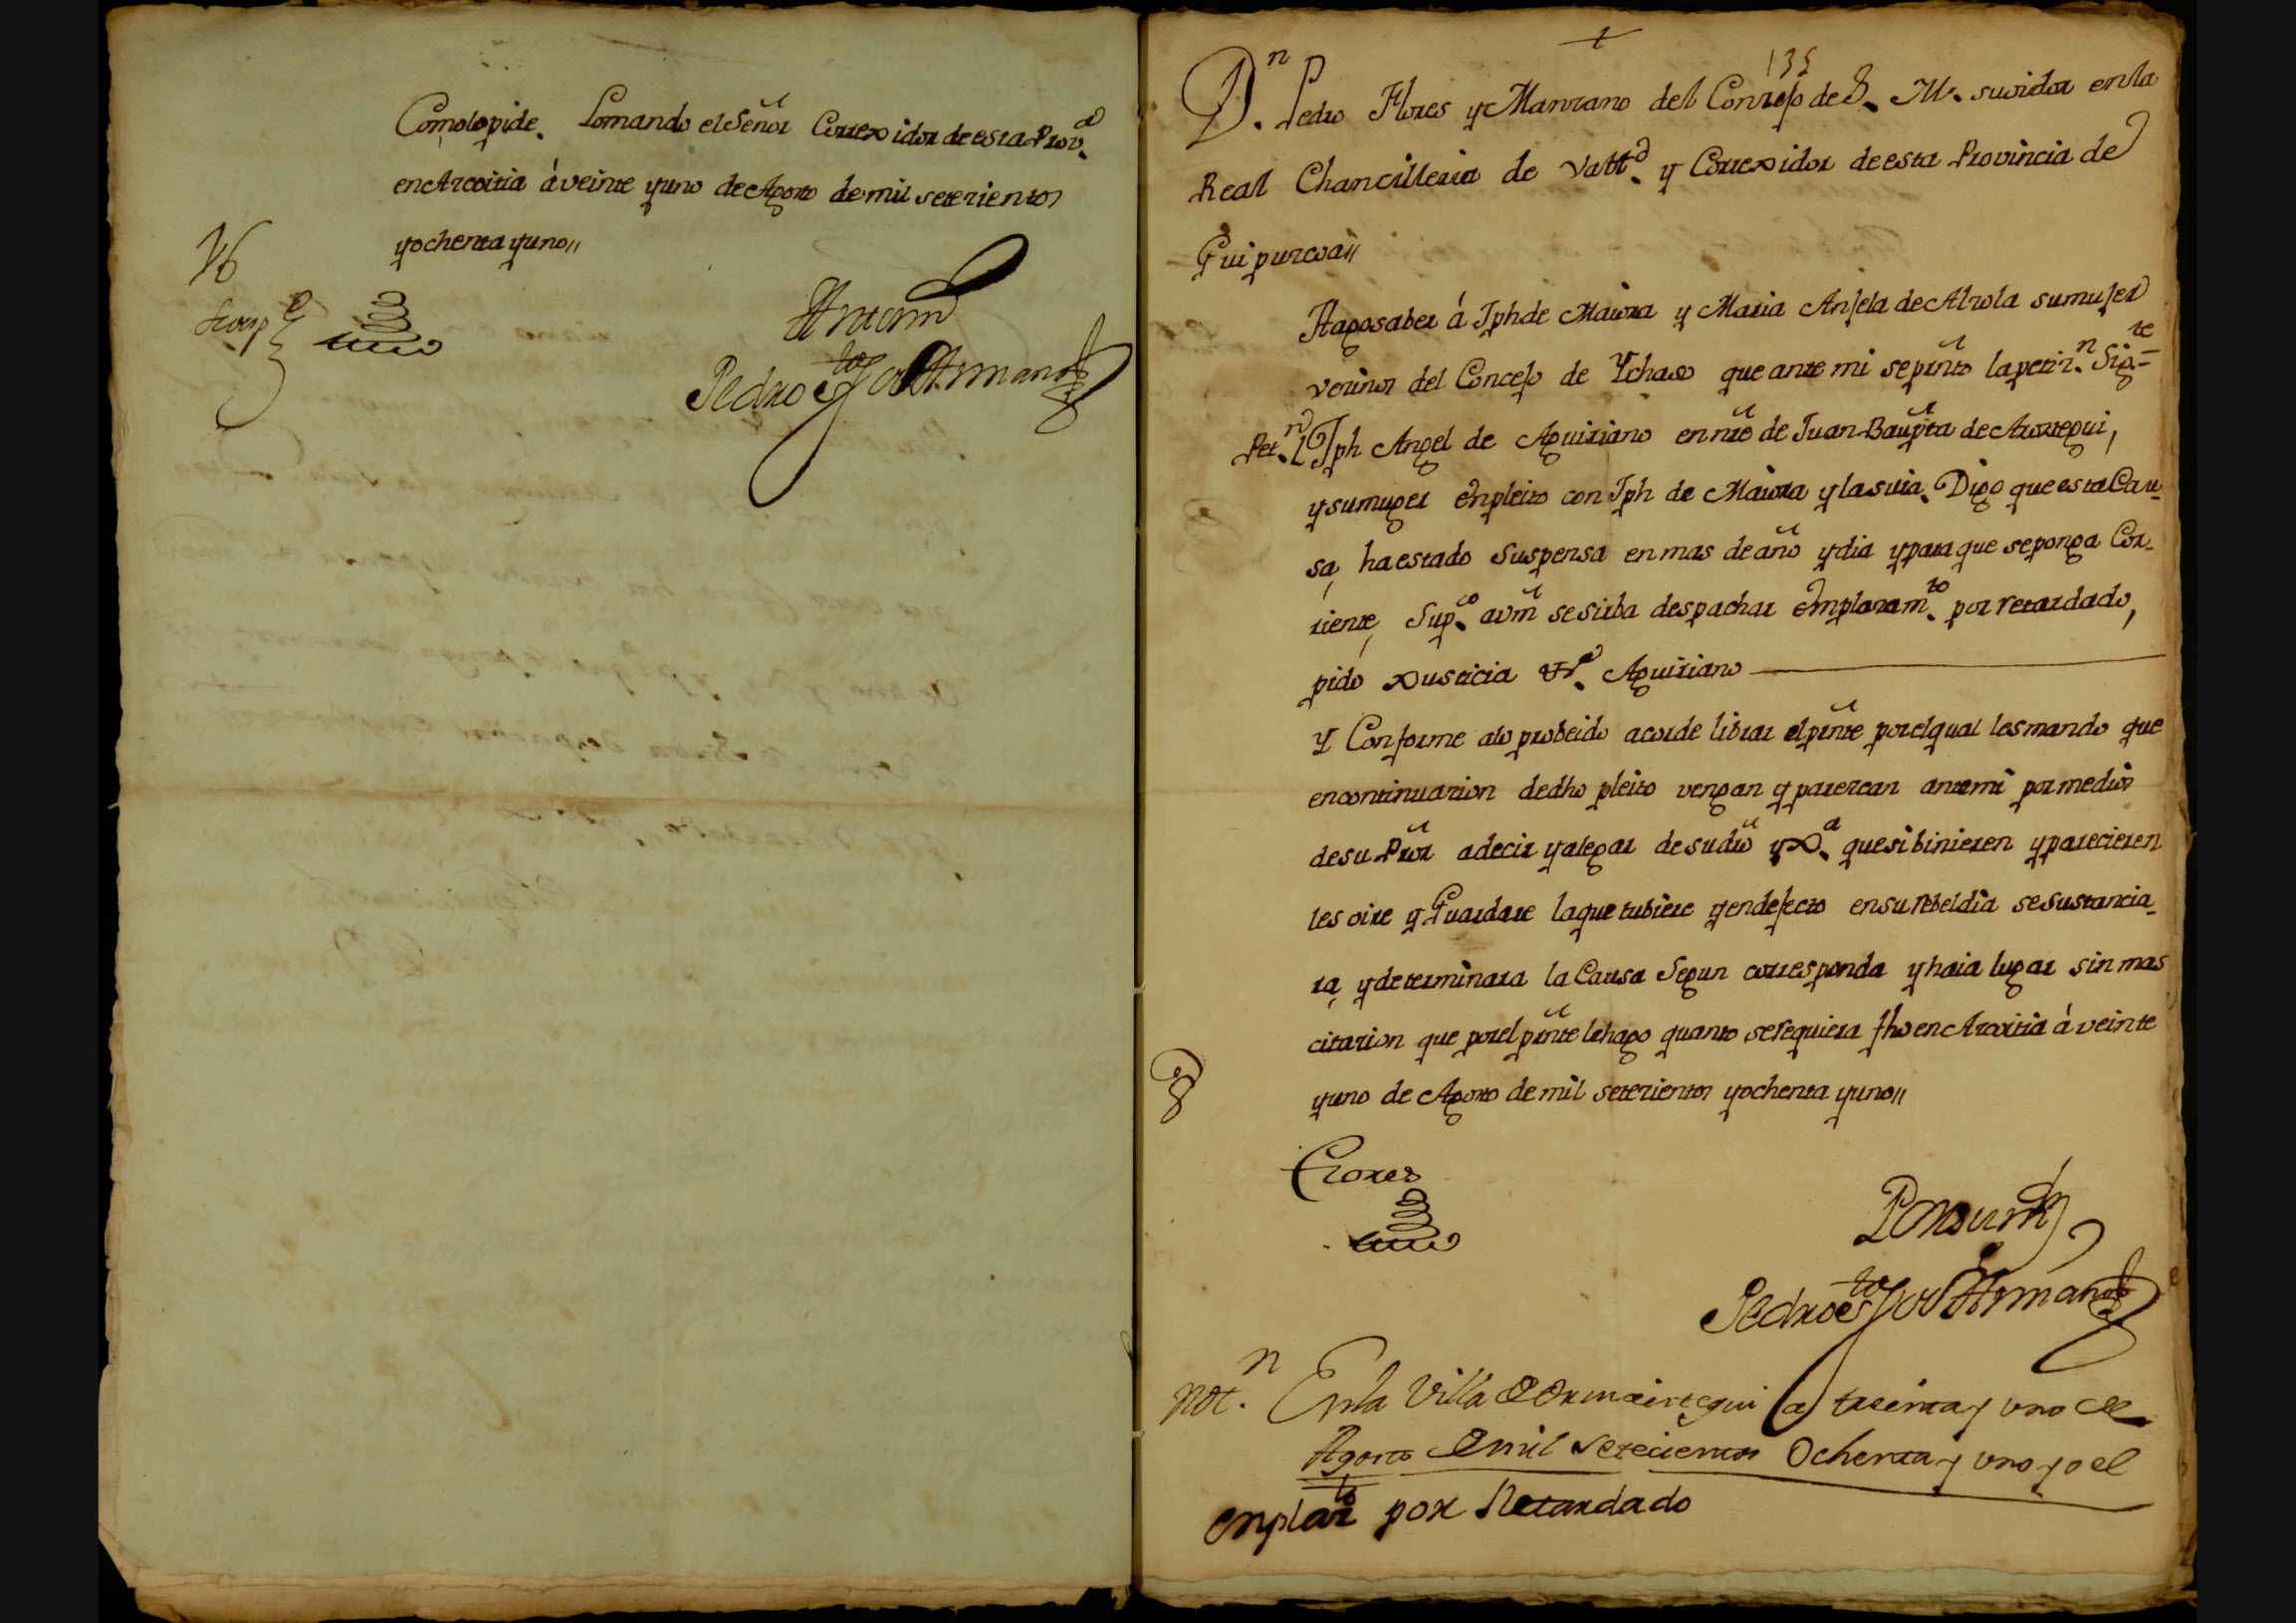 Comolopide. Lomando el Señor Correxidor de esta Prov.ª
en Azcoitia á veinte y uno de Agosto de mil setezientos
y ochenta y uno,,
Ante mi
Pedro
135
D.n Pedro Flores y Manzano del Consejo de S. M. su oidor en la
Real Chancilleria de Vall.d y Correxidor de esta Provincia de
Guipuzcoa,,
Hago saber á Jph de Maiora y Maria Anjela de Alzola su mujer
vezinos del Concejo de Ychaso que ante mi se pñto la petiz.n Sig.te =
Pet.n Jph Angel de Aguiriano en nrẽ de Juan Baupta de
y su muger en pleito con Jph de Maiora y la suia. Digo que esta Cau-
sa, ha estado Suspensa en mas de año y dia y para que se ponga Cor-
riente, Sup.co a vm se sirba despachar emplazam.to por retardado,
pido xusticia &.ª Aguiriano
Y Conforme a lo probeido acorde librar el pñte por el qual les mando que
en continuazion de dho pleito vengan y parezcan ante mi por medio
de su Pror a decir y alegar de su dro y X.ª que si binieren y parecieren
les oire y Guardare la que tubiere y en defecto en su rebeldia se sustancia-
ra, y determinara la Causa Segun corresponda y haia lugar sin mas
citazion que por el pñte le hago quanto se requiera fho en Azcoitia á veinte
y uno de Agosto de mil setezientos y ochenta y uno,,
Flores
Pedro
Not.n En la Villa de Ormaiztegui a treinta y uno de
Agosto de mil setecientos Ochenta y uno yo el
Emplaz.to por Retardado